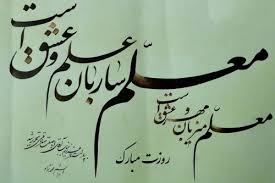 معلّم ساربان علم و عشق است
معلّم میزبان مهر و عشق است
روزت مبارک